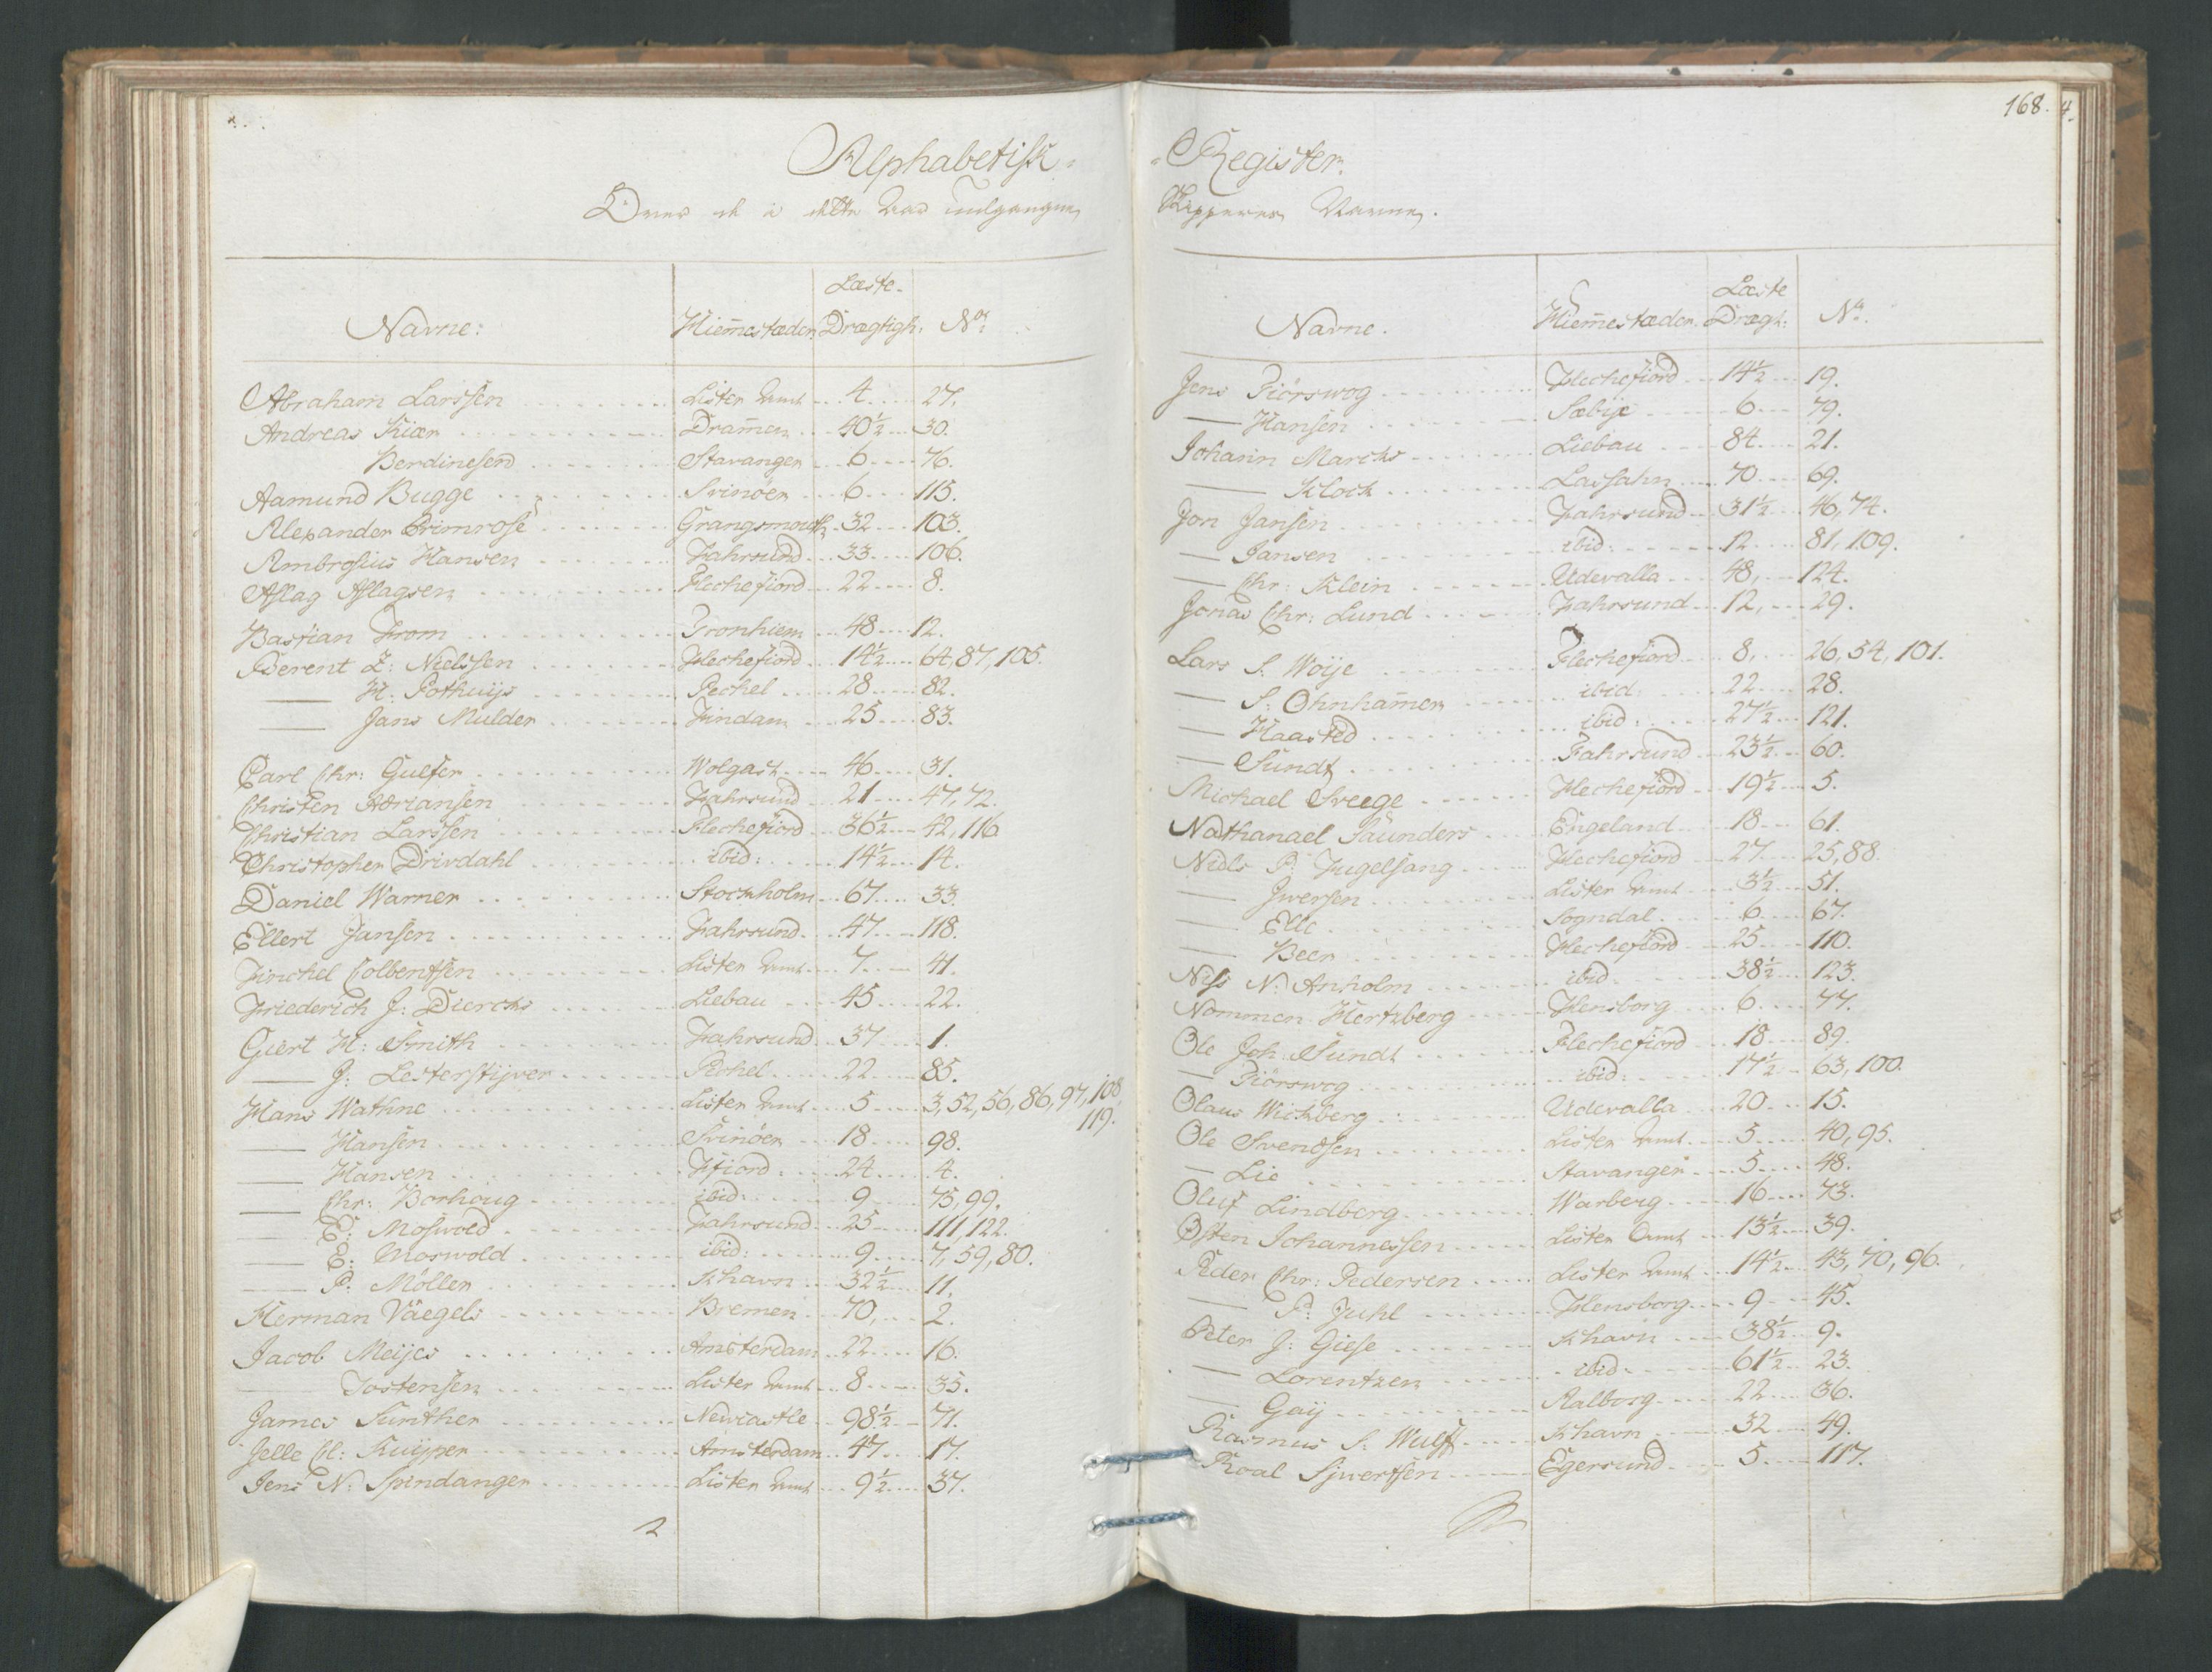 168.
4.
Alphabetisk-
Over de i dette Aar indgangne
Læste-
Navne: Hiem̄estæder Drægtigh: No:
Abraham Larssen Lister Amt 4 27.
Andreas Kiær Dram̄en 40½ 30.
Berdinesen Stavanger 6 76.
Aamund Bugge Svinöer 6 115.
Alexander Primrose Grangsmouth 32 103.
Ambrosius Hansen Fahrsund 33 106.
Aslag Aslagsen Flechefiord 22 8.
Bastian From Tronhiem 48 12.
Berent Z: Nielssen Flechefiord 14½ 64, 87, 105.
— H. Pothuijs Pechel 28 82.
— Jans Mulder Findam 25 83.
Carl Chr: Gulfer Wolgast 46 31.
Christen Adriansen Fahrsund 21 47, 72.
Christian Larssen Flechefiord 36½ 42, 116
Christopher Drivdahl ibid: 14½ 14.
Daniel Warner Stockholm 67 33.
Ellert Jansen Fahrsund 47 118.
Finchel Colbentsen Lister Amt 7 41.
Friederich J: Diercks Liebau 45 22.
Giert H: Smith Fahrsund 37 1.
— J: Lesterstijver Pechel 22 85.
Hans Wathne Lister Amt 5 3, 52, 56, 86, 97, 108,
119.
— Hansen Svinöer 18 98.
— Hansen Ffiord: 24 4.
— Chr: Borhoug ibid: 9 75, 99.
— E: Moswold Fahrsund 25 111, 122.
— E: Moswold ibid: 9 7, 59, 80.
— P: Möller Khavn 32½ 11.
Herman Väegels Bremen 70, 2.
Jacob Meijes Amsterdam 22 16.
— Tostensen Lister Amt 8 35.
James Surther Newcastle 98½ 71.
Jelle Cl: Kuijper Amsterdam 47 17.
Jens N: Spindanger Lister Amt 9½ 37.
-Register.
Skipperes Navne.
Læste
Navne. Hiem̄estæder. Drægt: No.
Jens Fiörswog Flechefiord 14½ 19.
— Hansen Sæbye 6 79.
Johann Marcks Liebau 84 21.
— Klock Lassahn 70 69.
Jon Jansen Fahrsund 31½ 46, 74.
— Jansen ibid: 12 81, 109.
— Chr: Klein Udevalla 48, 124.
Jonas Chr: Lund Fahrsund 12, 29.
Lars S: Woije Flechefiord 8, 26, 54, 101.
— S: Ohnham̄er ibid: 22 28.
— Haasted ibid: 27½ 121.
— Sundt Fahrsund 23½ 60.
Michael Sveege Flechefiord 19½ 5.
Nathanael Saunders Engeland 18 61.
Niels P: Fugelsang Flechefiord 27 25, 88.
— Jwersen Lister Amt 3½ 51.
— Elle Sogndal 6 67.
— Beer Flechefiord 25 110.
Nils N: Anholm ibid 38½ 123.
Nommen Hertzberg Flensborg 6 77.
Ole Joh: Sundt Flechefiord 18 89.
— Fiörswog ibid: 17½ 63, 100.
Olaus Wickberg Udevalla 20 15.
Ole Svendsen Lister Amt 5 40, 95.
— Lie Stavanger 5 48.
Oluf Lindberg Warberg 16 73.
Osten Johannessen Lister Amt 13½ 39.
Peder Chr: Pedersen Lister Amt 14½ 43, 70, 96.
— P: Juhl Flensborg 9 45.
Peter J: Giese Khavn 38½ 9.
— Lorentzen ibid: 61½ 23.
— Gaij Aalborg 22 36.
Rasmus S: Wulff Khavn 32 49.
Roal Sjwertsen Egersund 5 117.